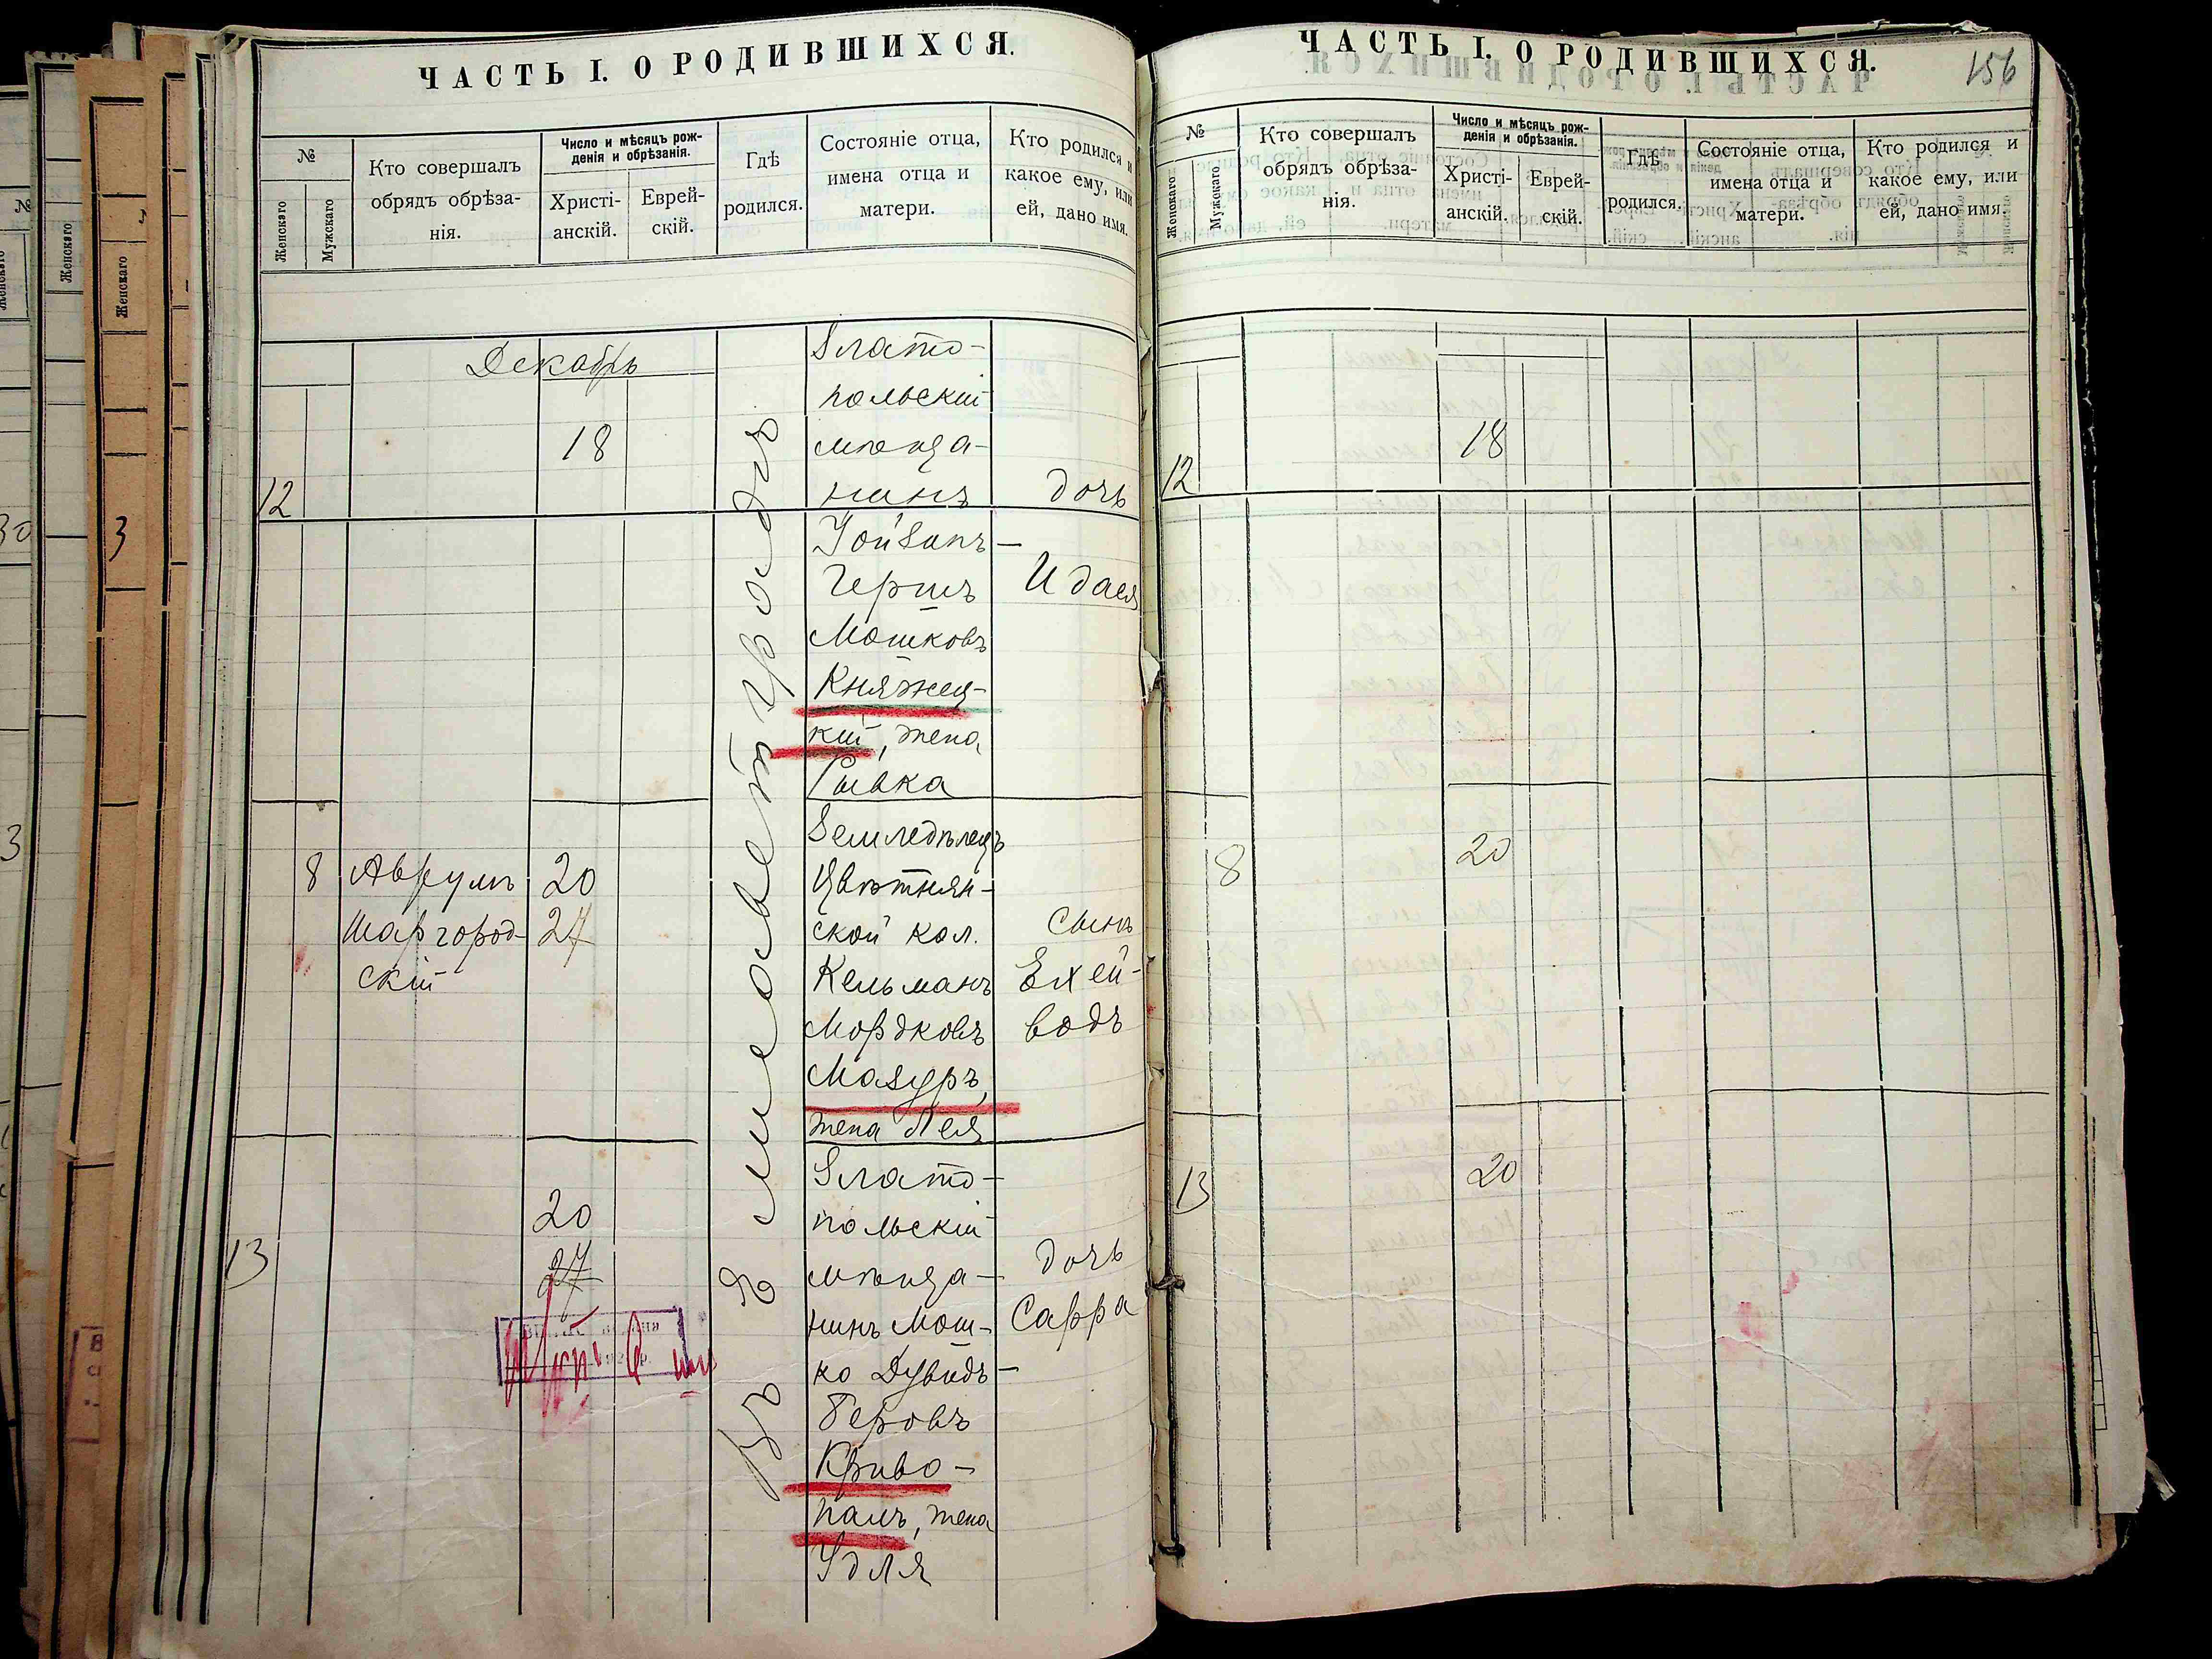 ЧАСТЬ I. О РОДИВШИХСЯ.
№
Женскаго
Мужскаго
Кто совершалъ
обрядъ обрѣза-
нія.
Число и мѣсяцъ рож-
денія и обрѣзанія.
Христі-
анскій.
Еврей-
скій.
Гдѣ
родился.
Состояніе отца,
имена отца и
матери.
Кто родился и
какое ему, или
ей, дано имя.
Декабрь
12
18
Злато-
польскій
мѣща-
нинъ
Іойзипъ-
Гершъ
Мошковъ
Княжец-
кій, жена
Рывка
дочь
Идася
8
Аврумъ
Шаргород-
скій
20
27
Земледѣлецъ
Цвѣтнян-
ской кол.
Кельманъ
Мордковъ
Мазуръ,
жена Лея
сынъ
Ехей-
водъ
13
20
27
Злато-
польскій
мѣща-
нинъ Мош-
ко Дувидъ-
Беровъ
Криво-
палъ, жена
Удля
дочь
Сарра
ЧАСТЬ I. О РОДИВШИХСЯ.
156
№
Женскаго
Мужскаго
Кто совершалъ
обрядъ обрѣза-
нія.
Число и мѣсяцъ рож-
денія и обрѣзанія.
Христі-
анскій.
Еврей-
скій.
Гдѣ
родился.
Состояніе отца,
имена отца и
матери.
Кто родился и
какое ему, или
ей, дано имя.
12
18
8
20
13
20